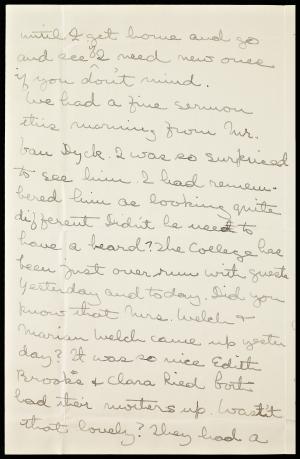 until I get home and go
and see if I need new once
if you don't mind.
We had a fine sermon
this morning from Mr.
van Dyck. I was so surprised
to see him. I had remem-
bered him as looking quite
different. Didn't he used to
have a beard? The College has
been just over-run with guests
yesterday and today. Did you
know that Mrs. Welch &
Marian Welch came up yester
day? It was so nice Edith
Brooks & Clara Ried both
had their mothers up. Wasn't
that lovely? They had a